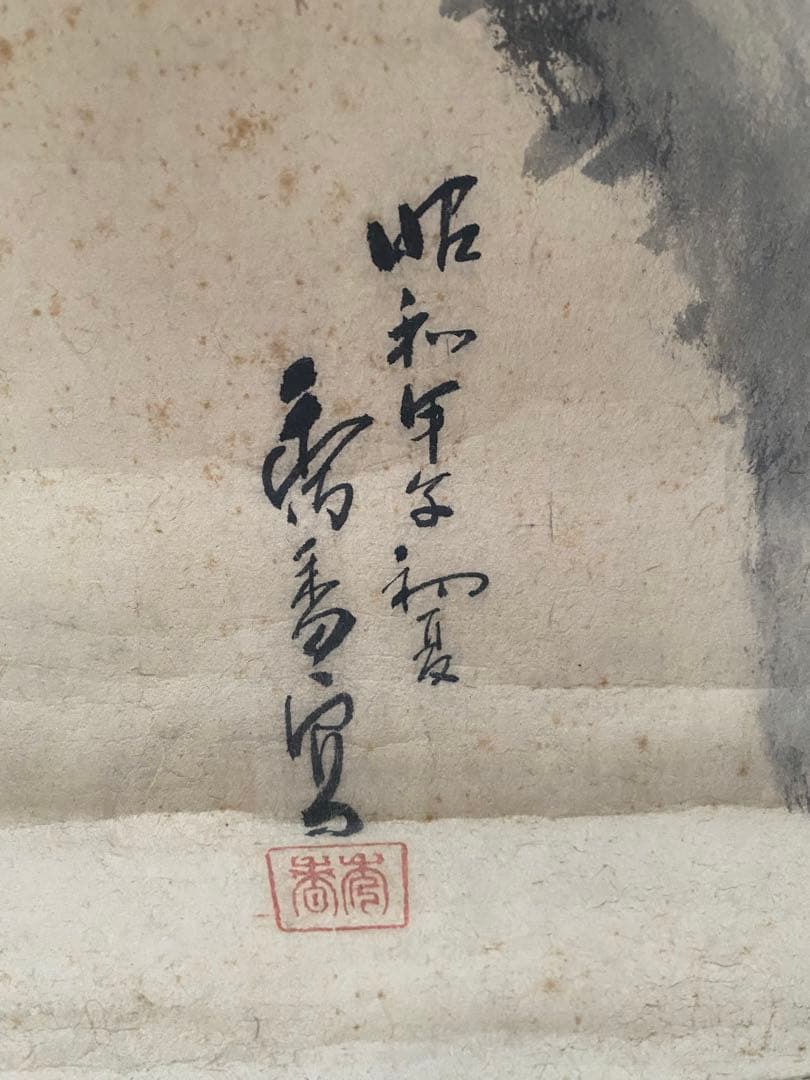 昭和甲子初夏
香寫
秀香